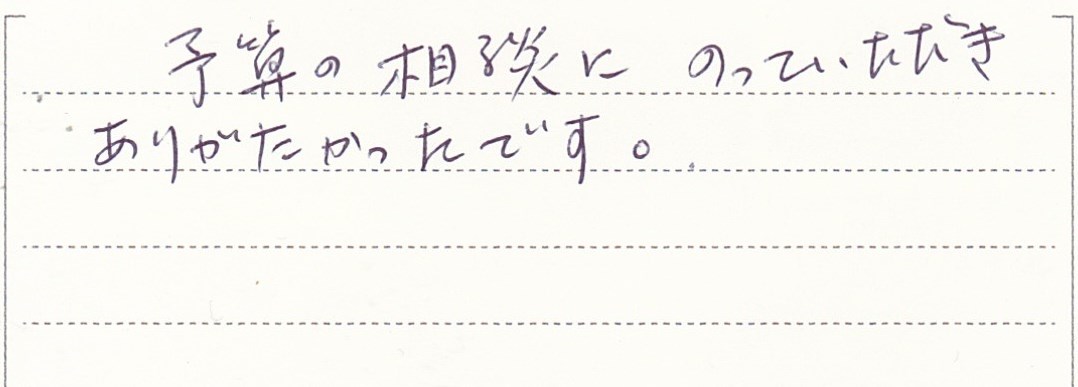 予算の相談にのっていただき
ありがたかったです。